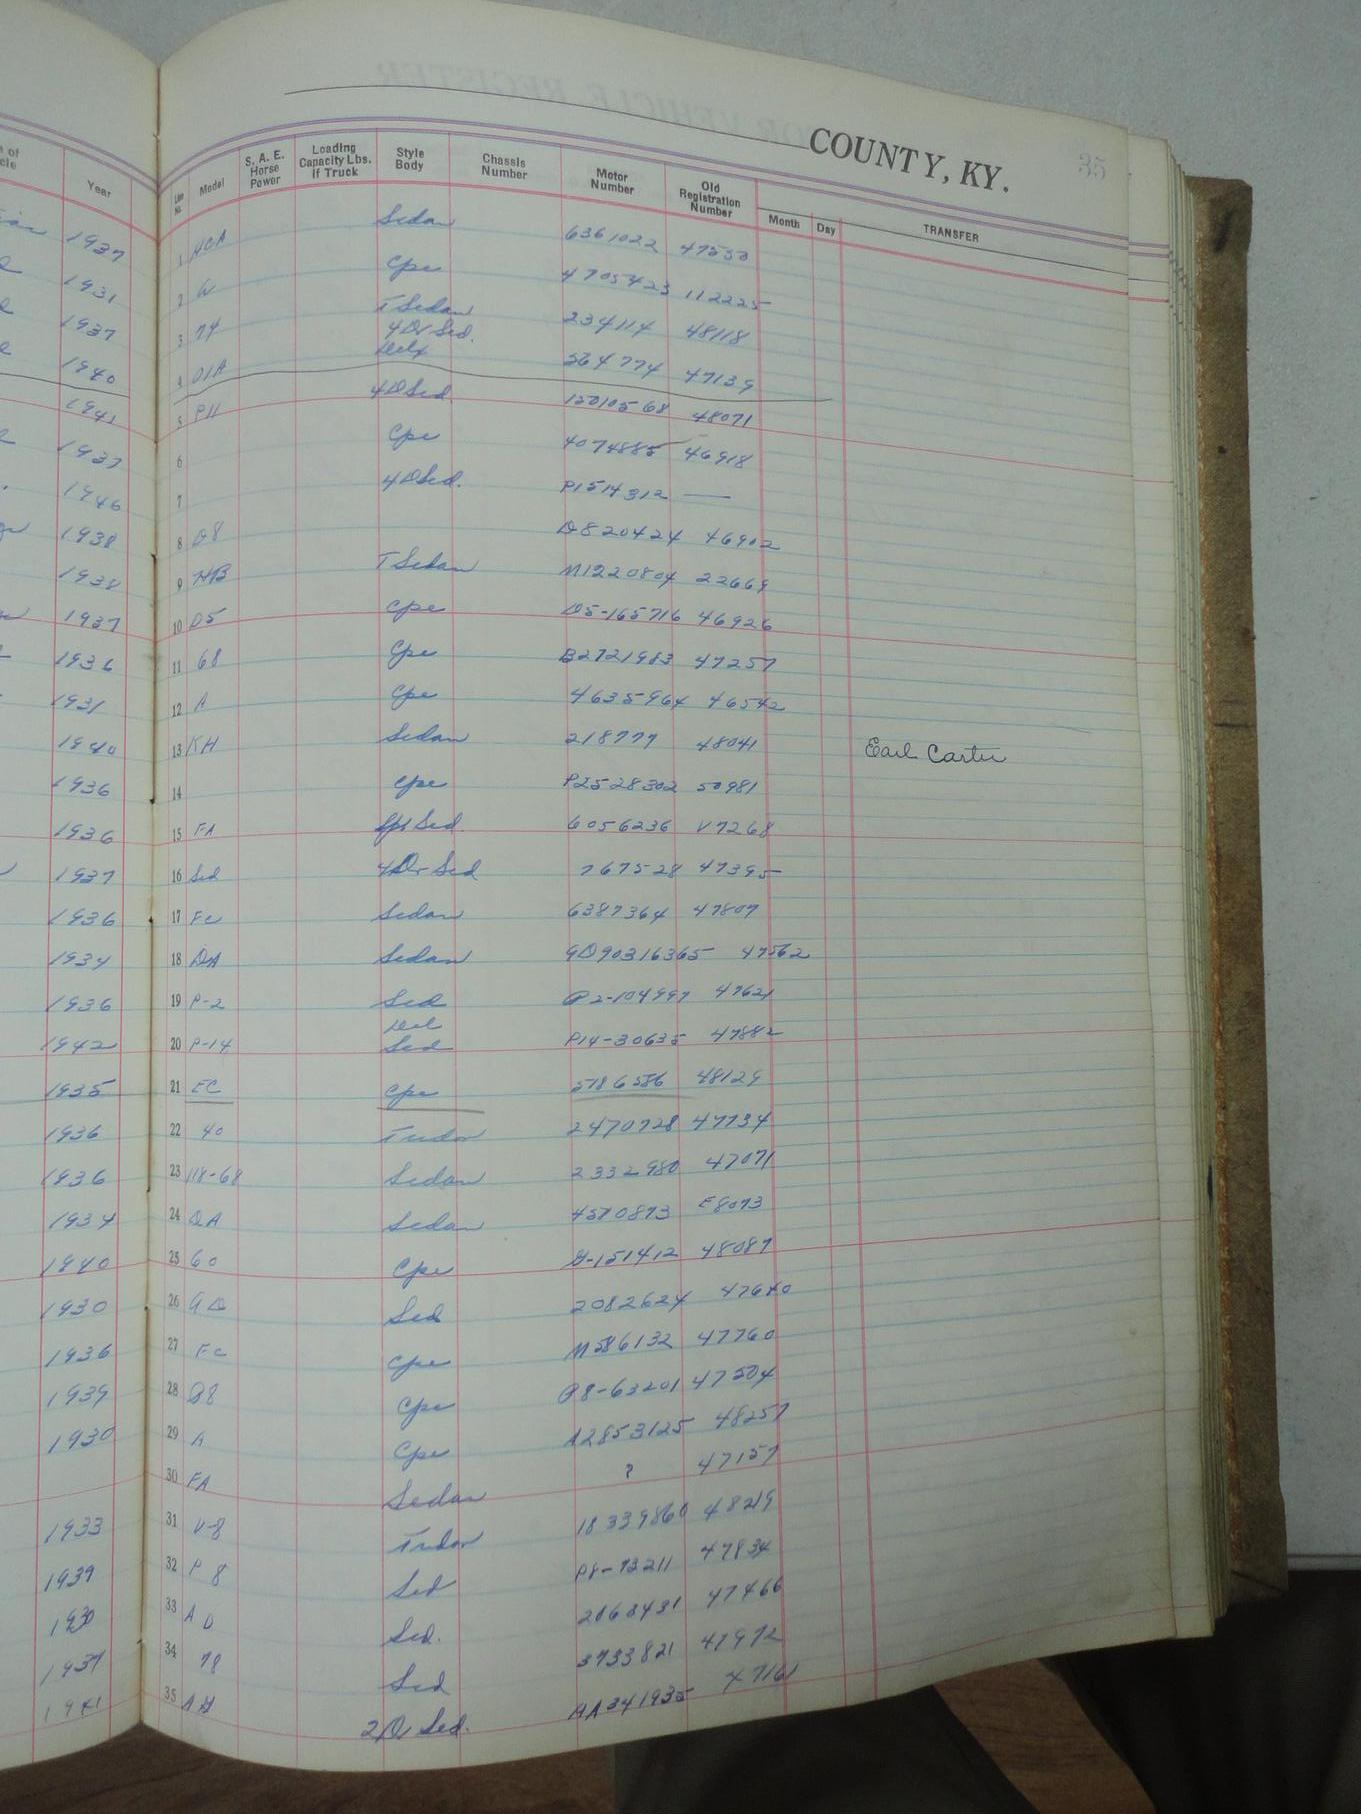 COUNTY, KY. 35
Year Line No. Model S. A. E. Horse Power Loading Capacity Lbs. If Truck Style Body Chassis Number Motor Number Old Registration Number Month Day TRANSFER
1937 1 Sedan 6361022
1931 2 Cpe 4705423 112225
1937 3 74 T Sedan 234114 48118
1940 4 01A 4 Dr Sed. Delx 564774 47139
1941 5 P11 4D Sed 15010568 48071
1937 6 Cpe 4074885 46918
1946 7 4D Sed. P1514312 —
1938 8 D8 D820424 46902
1938 9 HB T Sedan M1220804 22669
1937 10 D5 Cpe D5-165716 46926
1936 11 68 Cpe B2721983 47257
1931 12 A Cpe 4635964 46542
1940 13 KH Sedan 218779 48041 Earl Carter
1936 14 Cpe P2528302 50981
1936 15 FA Sed. 6056236 V7268
1937 16 Sed 4Dr Sed 767528 47395
1936 17 Fc Sedan 6387364 47807
1934 18 DA Sedan 47562
1936 19 P-2 Sed P2-104997 47621
1942 20 P-14 Del Sed P14-30635 47882
1935 21 EC Cpe 5186586 48129
1936 22 40 Tudor 2470728 47734
1936 23 118-68 Sedan 2332980 47071
1934 24 DA Sedan 4570873 E8073
1940 25 60 Cpe G-151412 48087
1930 26 Sed 2082624 47640
1936 27 Fc Cpe M586132 47760
1939 28 Cpe P8-63201 47504
1930 29 A Cpe A2853125 48257
30 FA Sedan ? 47157
1933 31 V-8 Tudor 18339860 48219
1939 32 P 8 Sed P8-73211 47834
1930 33 A D Sed. 2068431 47466
1937 34 78 Sed 3733821 47972
1941 35 AH 2D Sed. AA341935 47161